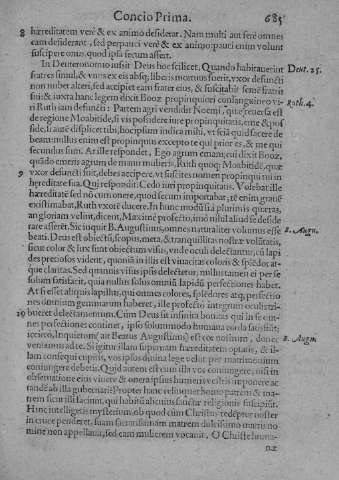 Concio Prima. 685
8 hæreditatem verè & ex animo desiderat. Nam multi aut ferè omnes
eam desiderant, sed perpauci verè & ex animo: pauci enim volunt
suscipere onus, quod ipsa secum affert.
In Deuteronomio iussit Deus hoc scilicet, Quando habitauerint Deut. 25.
fratres simul, & vnus ex eis absq; liberis mortuus fuerit, vxor defuncti
non nubet alteri, sed accipiet eam frater eius, & suscitabit semē fratris
sui: & iuxta hanc legem dixit Booz propinquiori consanguineo vi-
ri Ruth iam defuncti: Partem agri vendidit Noemi, quæ reuersa est Ruth. 4.
de regione Moabitide, si vis possidere iure propinquitatis, eme & pos
side, si autē displicet tibi, hoc ipsum indica mihi, vt sciā quid facere de
beam: nullus enim est propinquus excepto te qui prior es, & me qui
secundus sum. At ille respondet, Ego agrum emam; cui dixit Booz,
quādo emeris agrum de manu mulieris, Ruth quoq; Moabitidē, quæ
9 vxor defuncti fuit, debes accipere, vt suscites nomen propinqui tui in
hæreditate sua. Qui respondit: Cedo iuri propinquitatis. Volebat ille
hæreditatē sed nō cum onere, quod secum importabat,
existimabat, Ruth vxorē ducere. In hunc modū
gloriam velint, dicent, Maximè profecto, imò nihil aliud se deside
rare asserēt. Sic inquit B. Augustinus, omnes naturaliter volumus esse B. Augu.
beati. Deus est obiectū, scopus, meta, & tranquillitas nostræ volūtatis,
sicut color & lux sunt obiectum visus, vnde oculi delectantur, cū lapi
des preciosos vident, quoniā in illis est viuacitas coloris & splēdor at-
que claritas. Sed quamuis visus ipsis delectetur, nullus tamen ei per se
solum satisfacit, quia nullus omnium lapidū perfectiones habet.
At si esset aliquis lapillus, qui omnes colores, splēdores atq; perfectio
nes omnium gemmarum haberet, ille profectò integrum oculis tri-
10 bueret delectamentum. Cùm Deus sit infinita bonitas qui in se om-
nes perfectiones continet, ipso solummodo humana corda
Inquietum (ait Beatus Augustinus) est cor nostrum, donec B. Augu.
veniamus ad te. Si igitur illam supernam hæreditatem optatis, & il-
lam consequi cupitis, vos ipsos diuina lege velut per matrimonium
coniungere debetis. Quid autem est cum illa vos coniungere, nisi in
obseruatione eius viuere & onera ipsius humeris vestris imponere ac
ab illa gubernari? Propter hanc relinquet homo patrem & ma-
trem sicut illi faciunt, qui habitū alicuius sanctæ religionis suscipiūt.
Hinc intelligetis mysterium, ob quod cùm Christus redēptor noster
in cruce penderet, suam sacratissimam matrem dulcissimo matris no
mine non appellauit, sed eam mulierem vocauit. O Christe huma-